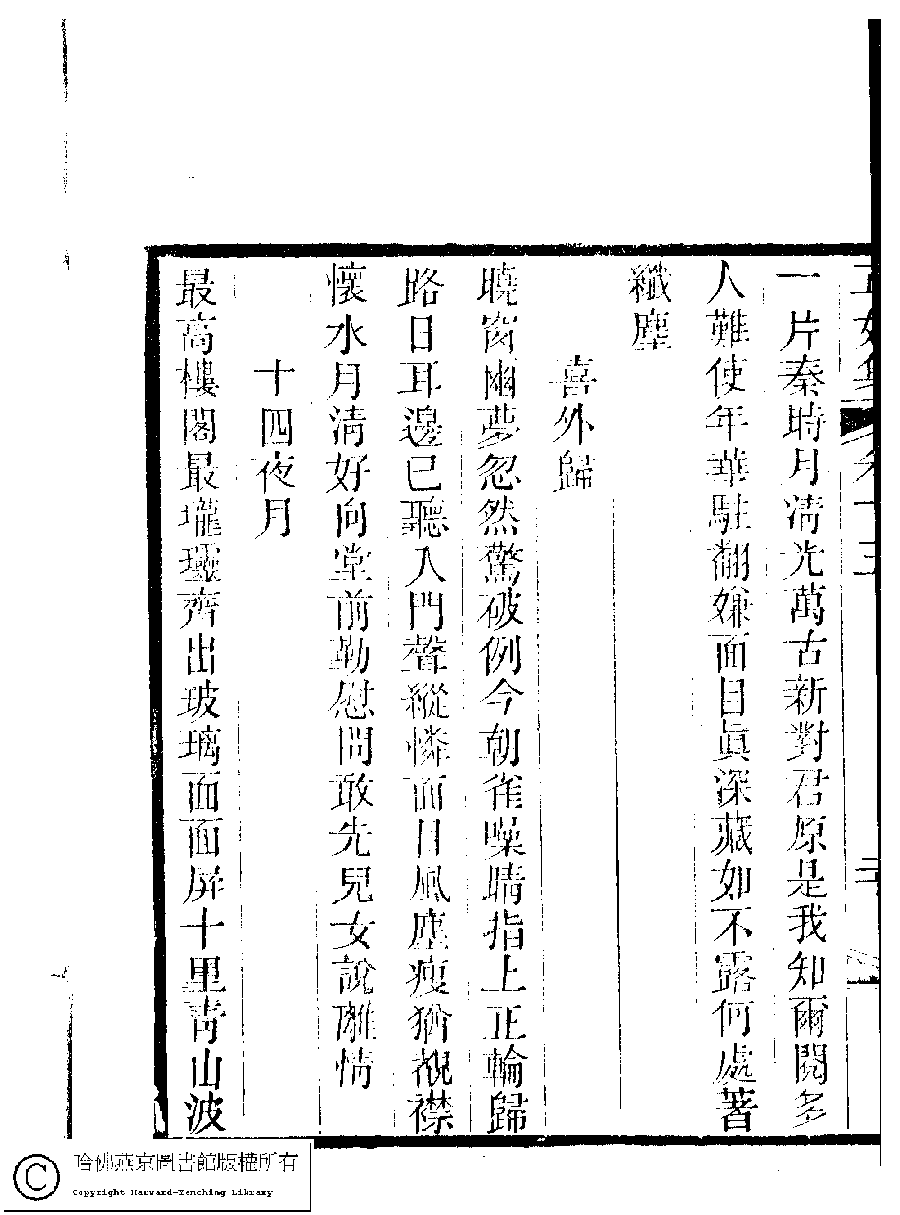 一片秦時月清光萬古新對君原是我知爾閱多
人難使年華駐翻嫌面目眞深藏如不露何處著
纖塵
喜外歸
曉窗幽夢忽然驚破例今朝雀噪晴指上正輪歸
路日耳邊已聽入門聲縱憐面目風塵瘦猶覩襟
懷水月淸好向堂前勤慰問敢先兒女說離情
十四夜月
最高樓閣最瓏瓏齊出玻璃面面屏十里靑山波
哈佛燕京圖書館版權所有
Copyright Harvard-Yenching Library